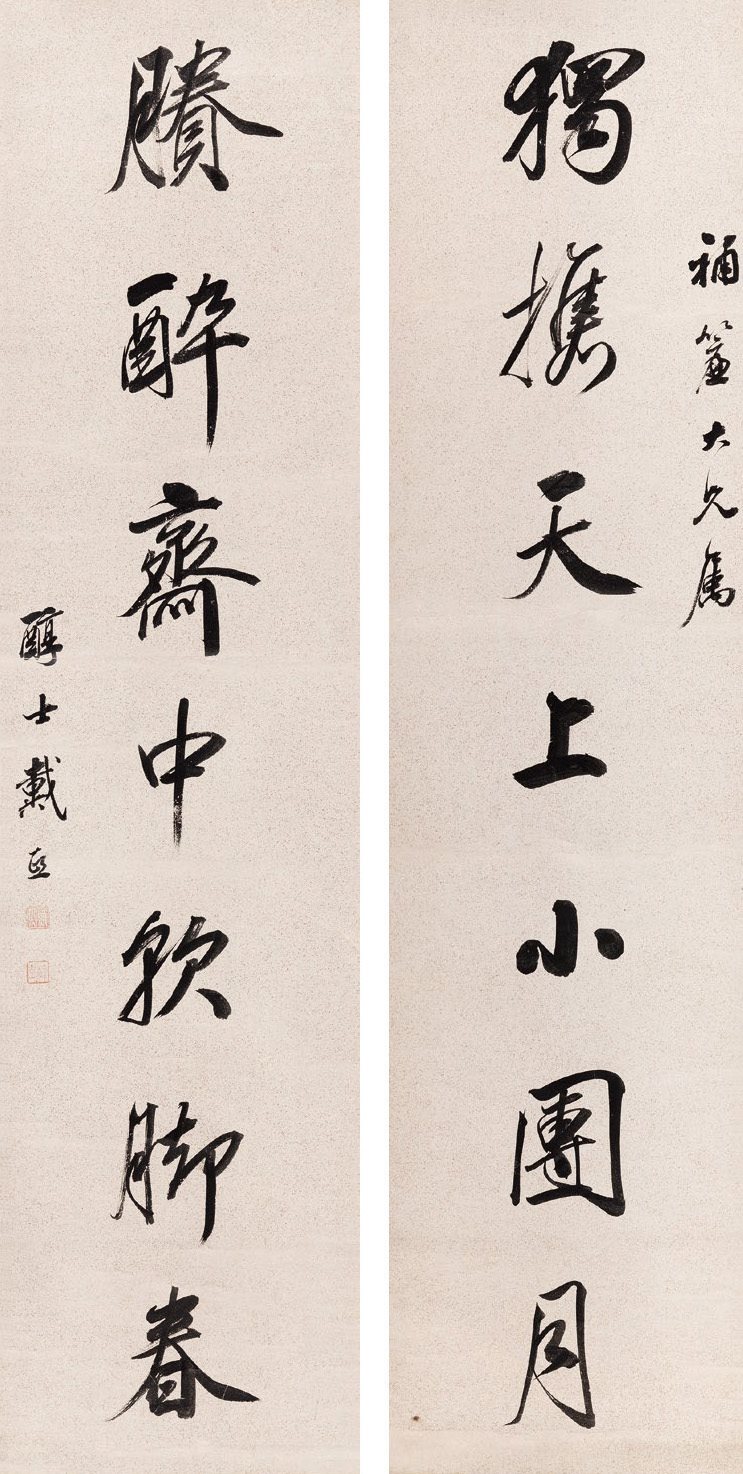 補簾大兄屬
獨攜天上小團月
賸醉齋中軟脚春
醇士戴熙